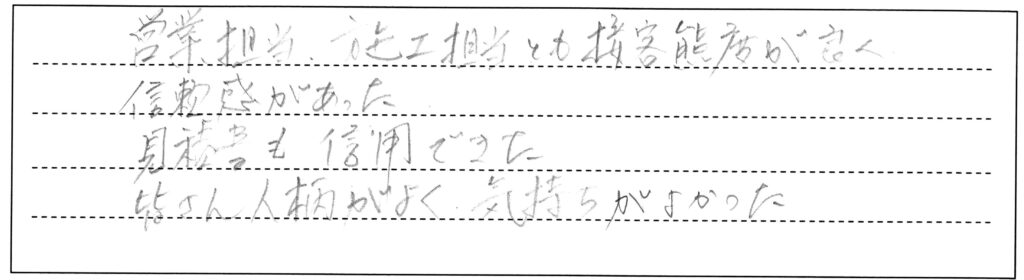 営業担当、施工担当とも接客態度が良く
信頼感があった
見積書も信用できた
皆さん人柄がよく、気持ちがよかった